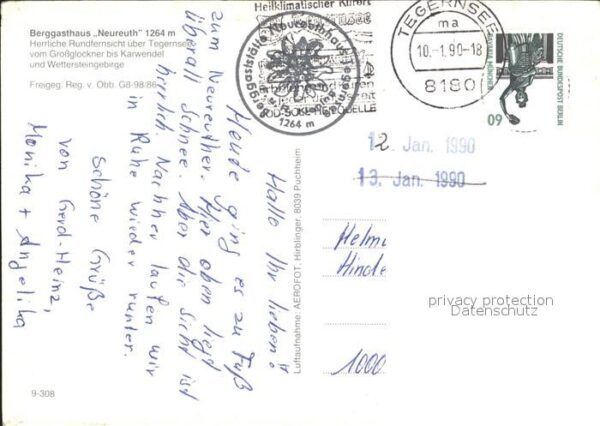 Berggasthaus „Neureuth" 1264 m
Herrliche Rundfernsicht über Tegernsee
vom Großglockner bis Karwendel
und Wettersteingebirge
Freigeg. Reg. v. Obb. G8-98/86
Heilklimatischer Kurort
Berggaststätte Neureuthhaus
1264 m
TEGERNSEE
ma
10.-1.90-18
8180
DEUTSCHE BUNDESPOST BERLIN
60
12. Jan. 1990
13. Jan. 1990
Hallo Ihr lieben!
Heute ging es zu Fuß
zum Neureuther. Hier oben liegt
überall Schnee. Aber die Sicht ist
herrlich. Nachher laufen wir
in Ruhe wieder runter.
Schöne Grüße
von Gerd-Heinz,
Monika + Angelika
Luftaufnahme: AEROFOT, Hirblinger, 8039 Puchheim
Helmu
Hinde
1000
privacy protection
Datenschutz
9-308